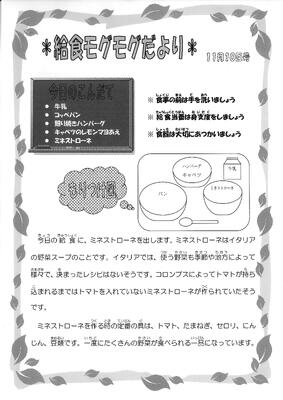 給食モグモグだより
11月10日号
今日のこんだて
牛乳
コッペパン
照り焼きハンバーグ
キャベツのレモンマヨあえ
ミネストローネ
※ 食事の前は手を洗いましょう
※ 給食当番は身支度をしましょう
※ 食器は大切にあつかいましょう
もりつけ図
ハンバーグ
キャベツ
牛乳
パン
ミネストローネ
今日の給食に、ミネストローネを出します。ミネストローネはイタリア
の野菜スープのことです。イタリアでは、使う野菜も季節や地方によって
様々で、決まったレシピはないそうです。コロンブスによってトマトが持ち
込まれるまではトマトを入れていないミネストローネが作られていたそう
です。
ミネストローネを作る時の定番の具は、トマト、たまねぎ、セロリ、にん
じん、豆類です。一度にたくさんの野菜が食べられる一品になっています。